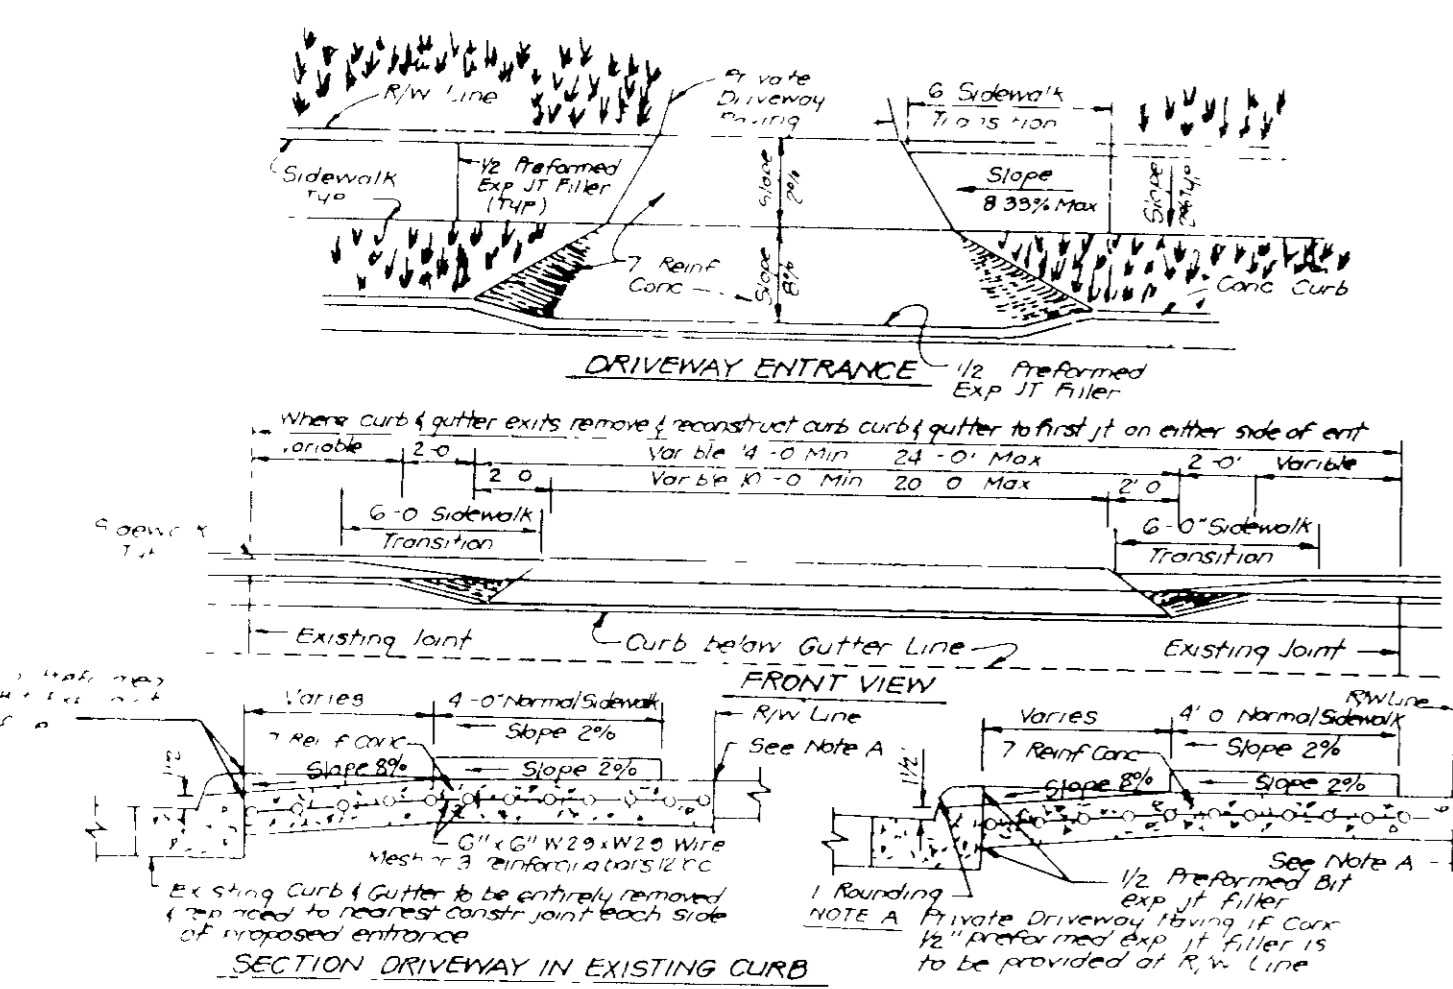 R/W Line
Private
Driveway
6 Sidewalk
Sidewalk
Typ
1/2 Preformed
Exp JT Filler
(Typ)
Slope
2%
Slope
8 33% Max
Slope
2% Typ
7 Reinf
Conc
Slope
8%
Conc Curb
DRIVEWAY ENTRANCE
1/2 Preformed
Exp JT Filler
Where curb & gutter exits remove & reconstruct curb curb & gutter to first jt on either side of ent
2-0
Min 24-0' Max
2-0'
Varible
2 0
Min 20 0 Max
2' 0
6-0 Sidewalk
Transition
6-0" Sidewalk
Transition
Existing Joint
Curb below Gutter Line
Existing Joint
FRONT VIEW
Varies
4-0" Normal Sidewalk
Slope 2%
R/W Line
See Note A
7 Reinf Conc
Slope 8%
Slope 2%
6" x 6" W29 x W29 Wire
Existing Curb & Gutter to be entirely removed
& replaced to nearest constr joint each side
of proposed entrance
SECTION DRIVEWAY IN EXISTING CURB
R/W Line
Varies
4' 0 Normal Sidewalk
Slope 2%
7 Reinf Conc
Slope 8%
Slope 2%
See Note A
1 Rounding
1/2 Preformed Bit
exp jt filler
NOTE A Private Driveway Paving if Conc
1/2" preformed exp jt filler is
to be provided at R/W Line